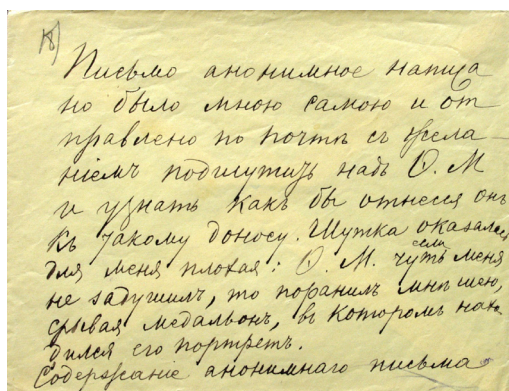 18)
Письмо анонимное написа
но было мною самою и от
правлено по почтѣ съ жела-
ніемъ подшутить надъ Ѳ. М
и узнать какъ бы отнесся онъ
къ такому доносу. Шутка оказалась
для меня плохая: Ѳ. М. если чуть меня
не задушилъ, то поранилъ мнѣ шею,
срывая медальонъ, въ которомъ нахо
дился его портретъ.
Содержаніе анонимнаго письма